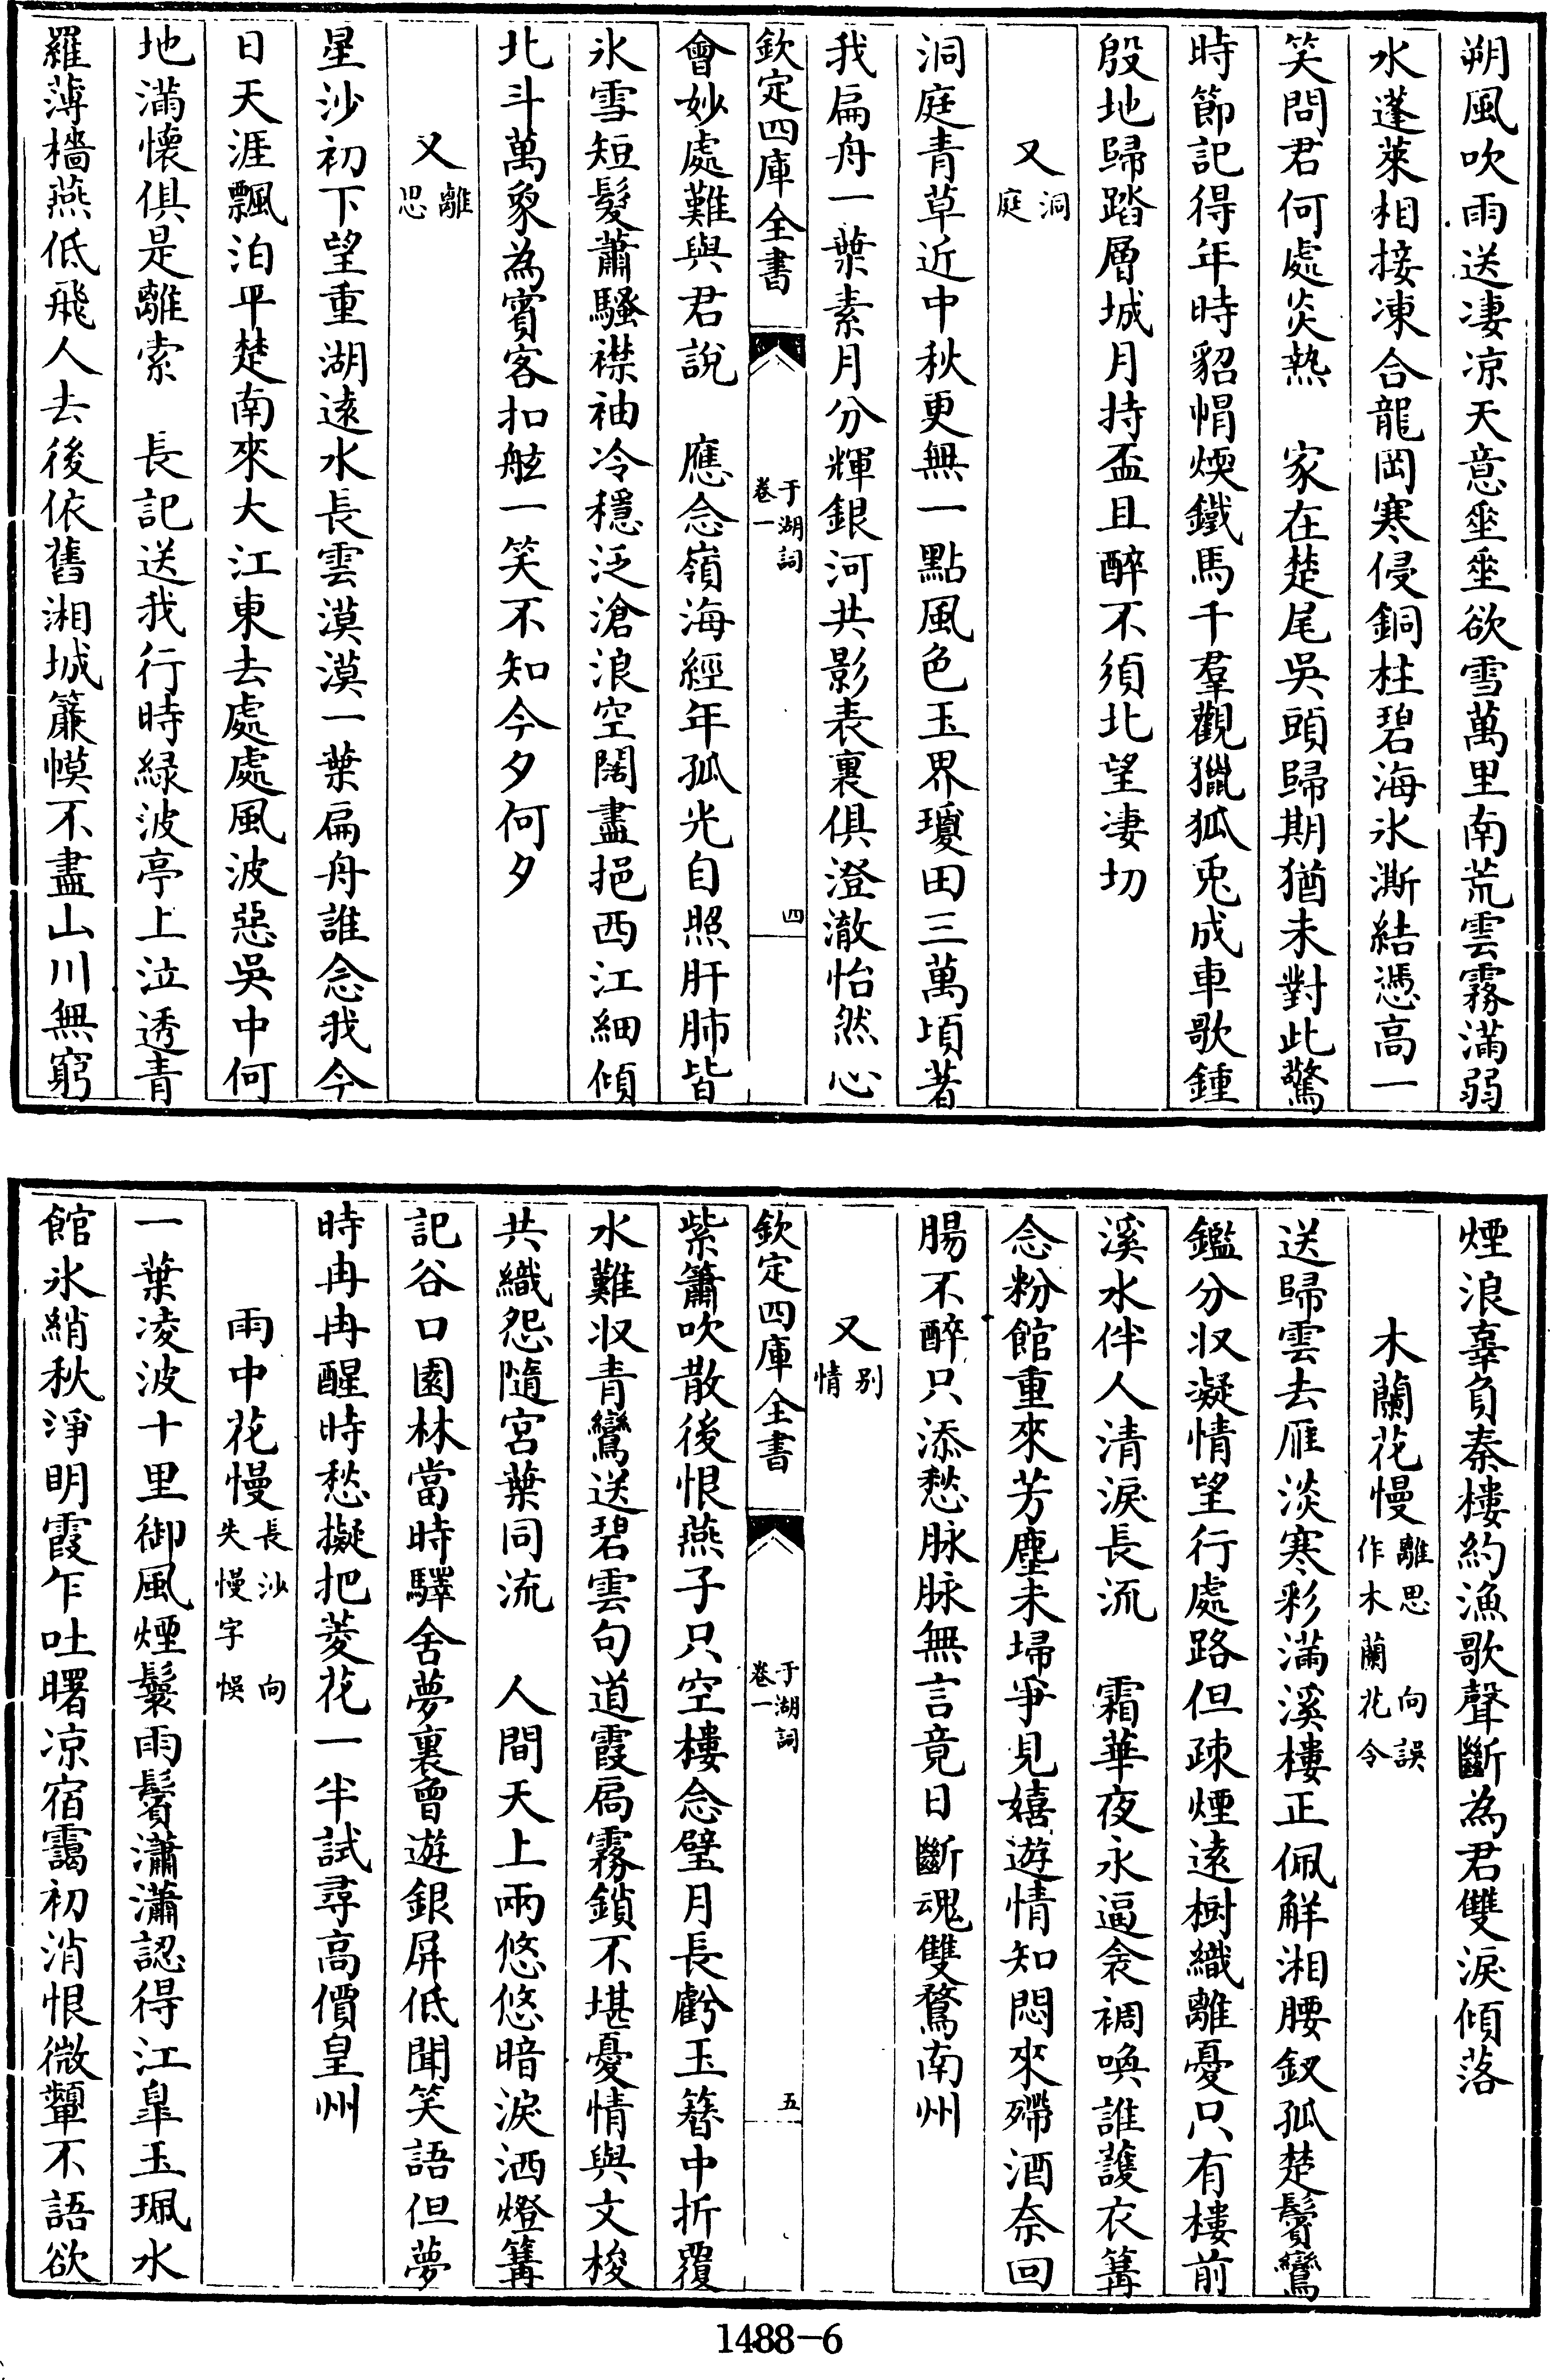 朔風吹雨送凄凉天意垂垂欲雪萬里南荒雲霧滿弱
水蓬萊相接凍合龍岡寒侵銅柱碧海氷澌結憑高一
笑問君何處炎熱　家在楚尾吳頭歸期猶未對此驚
時節記得年時貂帽煖鐵馬千羣觀獵狐兎成車歌鍾
殷地歸踏層城月持盃且醉不須北望凄切
又洞庭
洞庭青草近中秋更無一點風色玉界瓊田三萬頃著
我扁舟一葉素月分輝銀河共影表裏俱澄澈怡然心
欽定四庫全書　于湖詞卷一　四
會妙處難與君說　應念嶺海經年孤光自照肝肺皆
氷雪短髮蕭騷襟袖冷穩泛滄浪空闊盡挹西江細傾
北斗萬象為賓客扣舷一笑不知今夕何夕
又離思
星沙初下望重湖遠水長雲漠漠一葉扁舟誰念我今
日天涯飄泊平楚南來大江東去處處風波惡吳中何
地滿懷俱是離索　長記送我行時緑波亭上泣透青
羅薄檣燕低飛人去後依舊湘城簾幙不盡山川無窮
煙浪辜負秦樓約漁歌聲斷為君雙淚傾落
木蘭花慢離思向誤作木蘭花令
送歸雲去雁淡寒彩滿溪樓正佩解湘腰釵孤楚鬢鸞
鑑分収凝情望行處路但疎煙遠樹織離憂只有樓前
溪水伴人清淚長流　霜華夜永逼衾裯喚誰護衣篝
念粉館重來芳塵未埽爭見嬉遊情知悶來殢酒奈回
腸不醉只添愁脉脉無言竟日斷魂雙鶩南州
又别情
欽定四庫全書　于湖詞卷一　五
紫簫吹散後恨燕子只空樓念璧月長虧玉簪中折覆
水難収青鸞送碧雲句道霞扃霧鎖不堪憂情與文梭
共織怨隨宮葉同流　人間天上兩悠悠暗淚洒燈篝
記谷口園林當時驛舍夢裏曾遊銀屏低聞笑語但夢
時冉冉醒時愁擬把菱花一半試尋高價皇州
雨中花慢長沙向失慢字悞
一葉凌波十里御風煙鬟雨鬢瀟瀟認得江臯玉珮水
館氷綃秋淨明霞乍吐曙凉宿靄初消恨微顰不語欲
1488-6